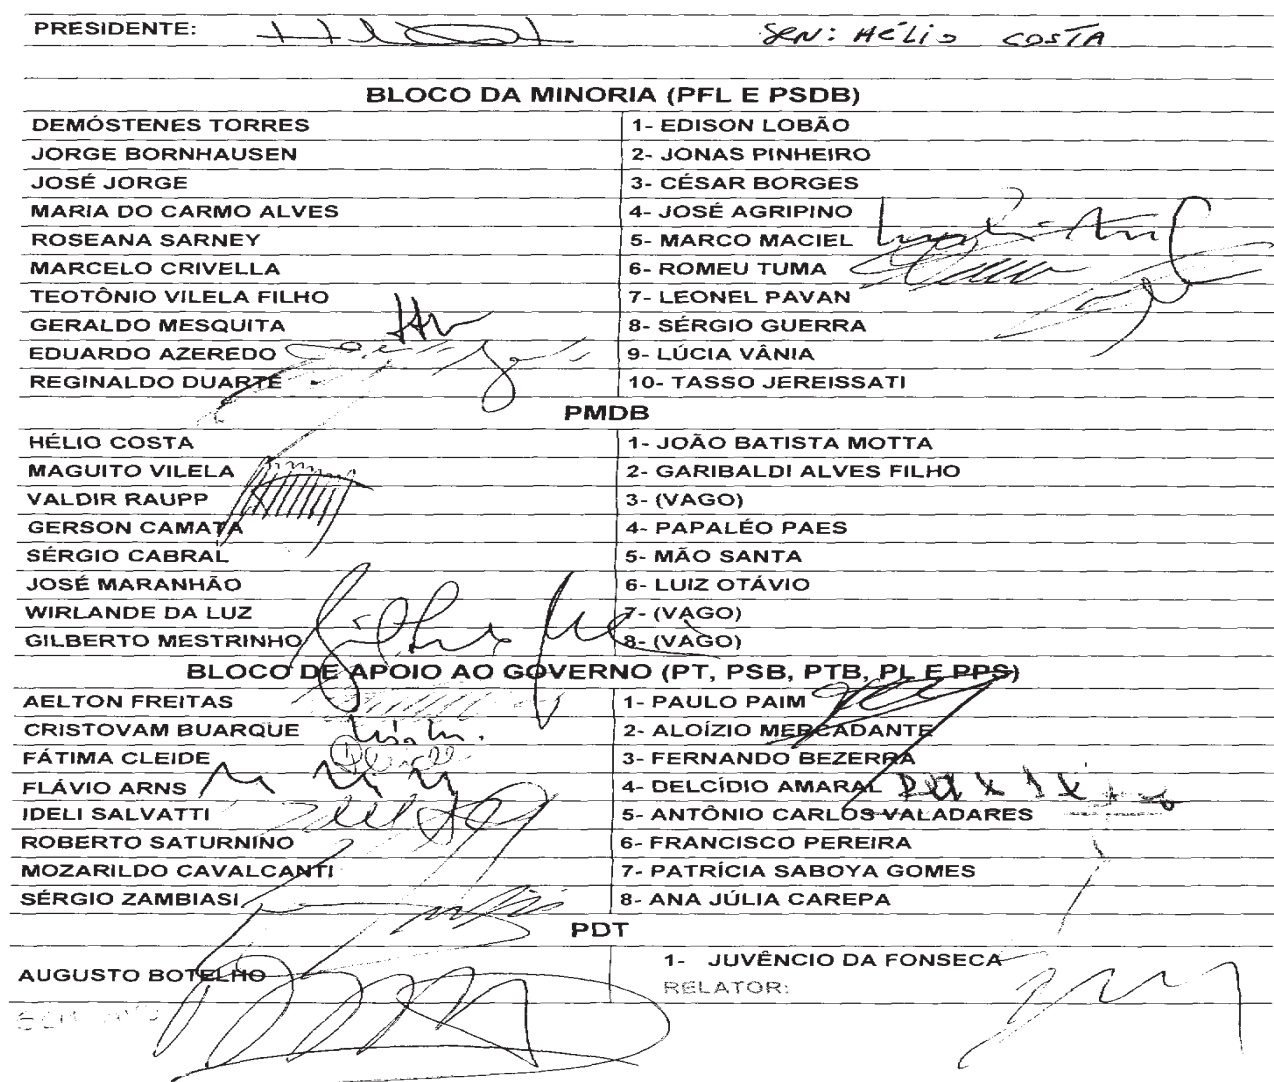 PRESIDENTE: SEN: HÉLIO COSTA
BLOCO DA MINORIA (PFL E PSDB)
DEMÓSTENES TORRES 1- EDISON LOBÃO
JORGE BORNHAUSEN 2- JONAS PINHEIRO
JOSÉ JORGE 3- CÉSAR BORGES
MARIA DO CARMO ALVES 4- JOSÉ AGRIPINO
ROSEANA SARNEY 5- MARCO MACIEL
MARCELO CRIVELLA 6- ROMEU TUMA
TEOTÔNIO VILELA FILHO 7- LEONEL PAVAN
GERALDO MESQUITA 8- SÉRGIO GUERRA
EDUARDO AZEREDO 9- LÚCIA VÂNIA
REGINALDO DUARTE 10- TASSO JEREISSATI
PMDB
HÉLIO COSTA 1- JOÃO BATISTA MOTTA
MAGUITO VILELA 2- GARIBALDI ALVES FILHO
VALDIR RAUPP 3- (VAGO)
GERSON CAMATA 4- PAPALÉO PAES
SÉRGIO CABRAL 5- MÃO SANTA
JOSÉ MARANHÃO 6- LUIZ OTÁVIO
WIRLANDE DA LUZ 7- (VAGO)
GILBERTO MESTRINHO 8- (VAGO)
BLOCO DE APOIO AO GOVERNO (PT, PSB, PTB, PL E PPS)
AELTON FREITAS 1- PAULO PAIM
CRISTOVAM BUARQUE 2- ALOÍZIO MERCADANTE
FÁTIMA CLEIDE 3- FERNANDO BEZERRA
FLÁVIO ARNS 4- DELCÍDIO AMARAL
IDELI SALVATTI 5- ANTÔNIO CARLOS VALADARES
ROBERTO SATURNINO 6- FRANCISCO PEREIRA
MOZARILDO CAVALCANTI 7- PATRÍCIA SABOYA GOMES
SÉRGIO ZAMBIASI 8- ANA JÚLIA CAREPA
PDT
AUGUSTO BOTELHO 1- JUVÊNCIO DA FONSECA
RELATOR: